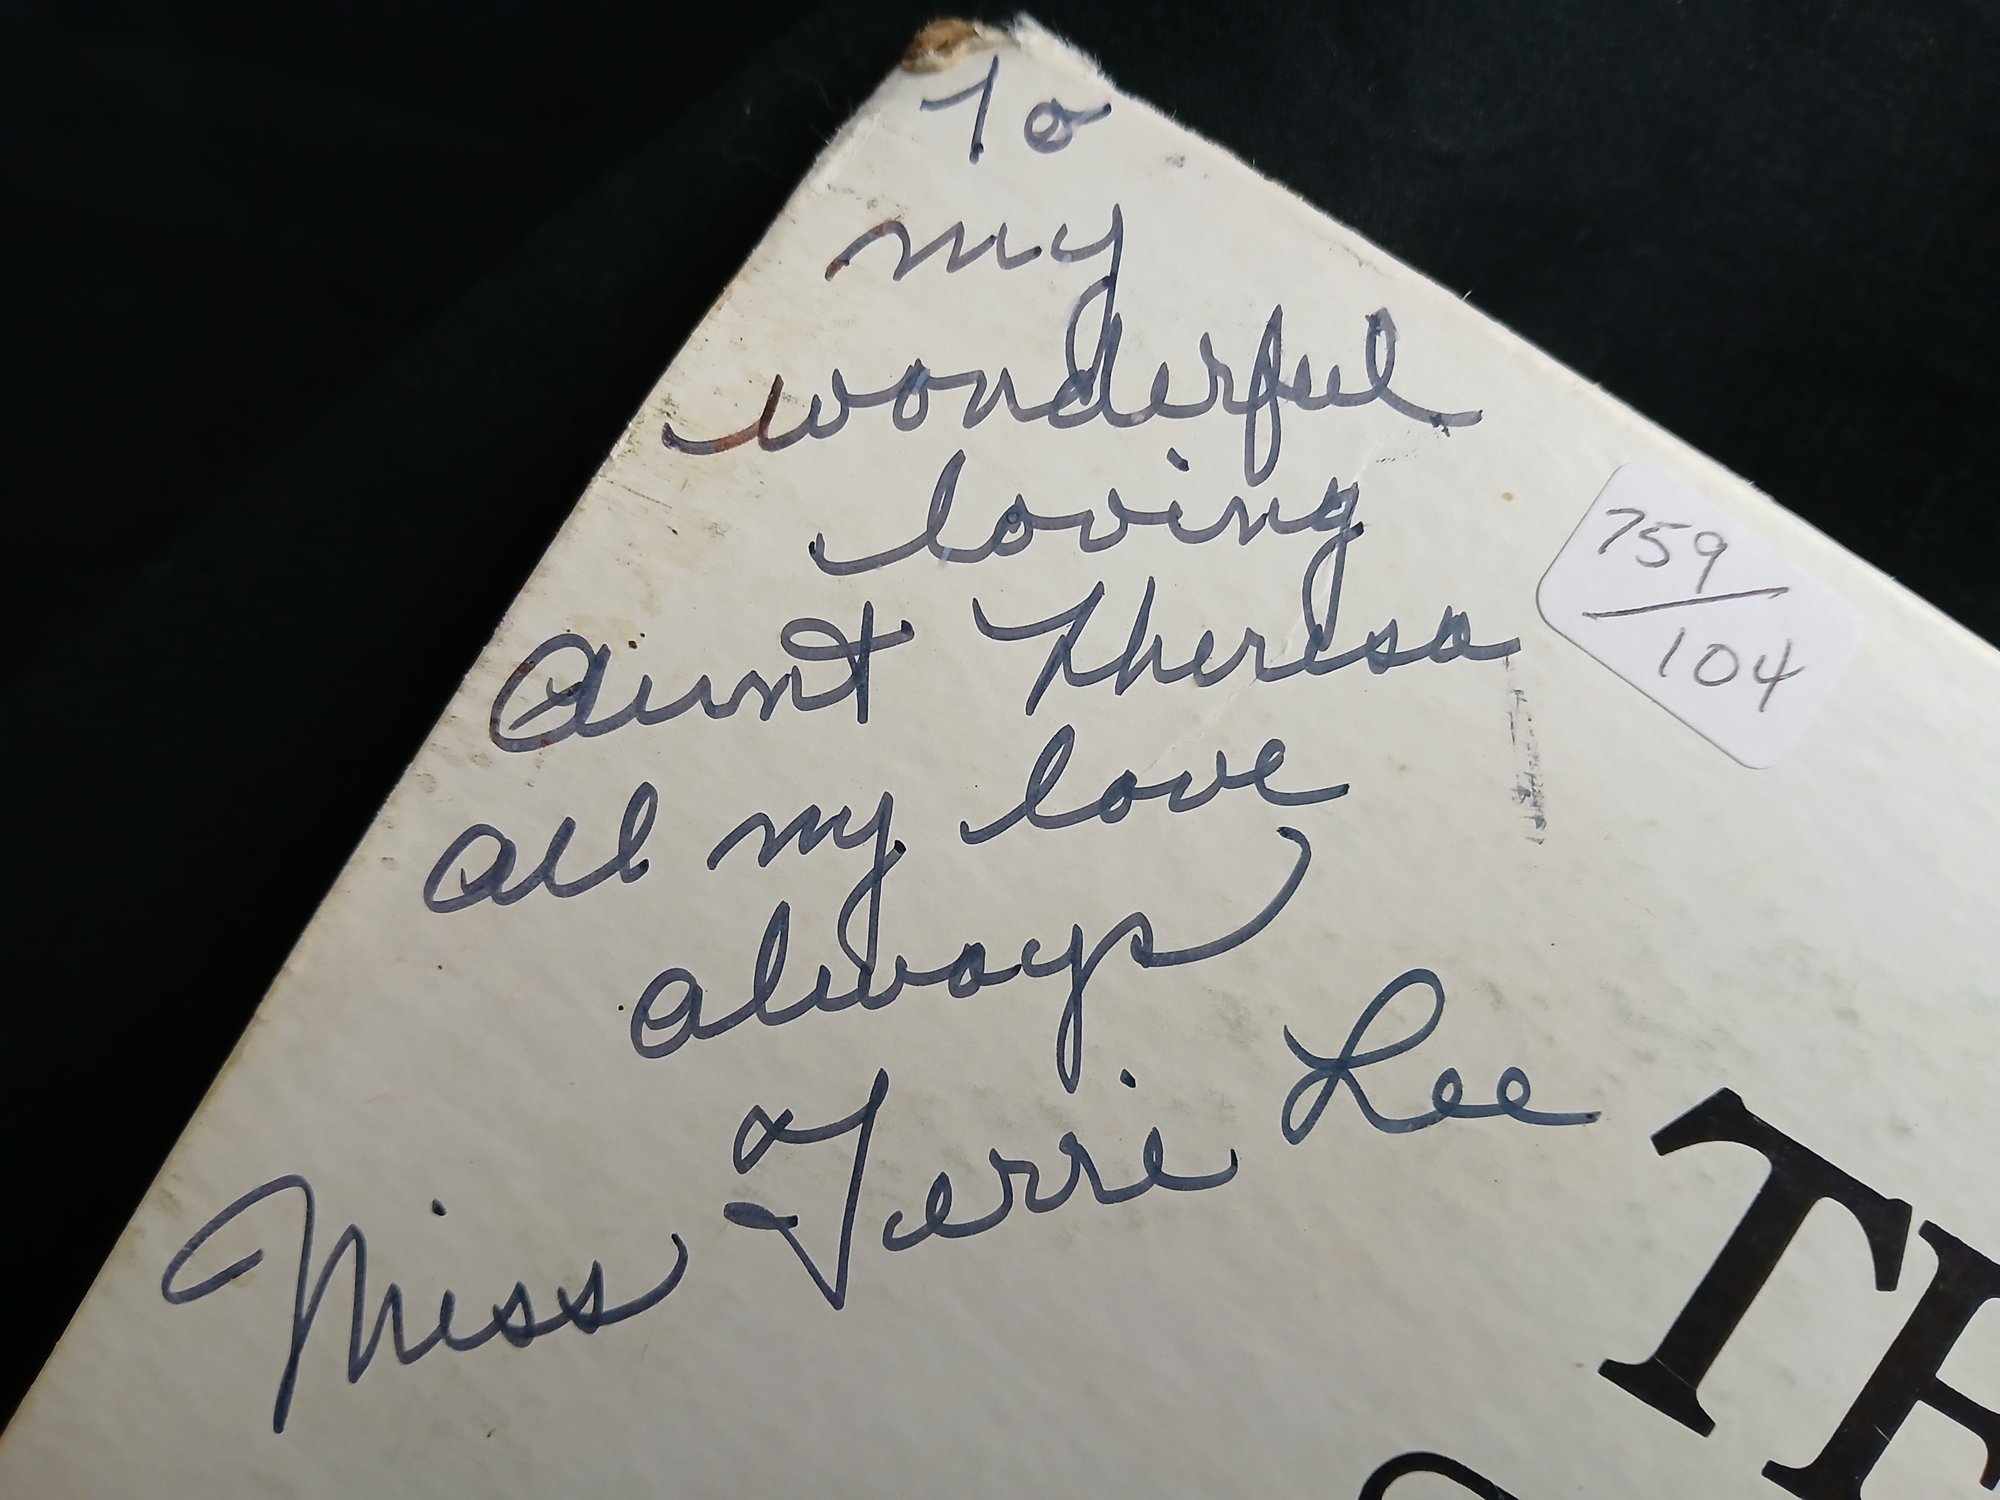 To
my
wonderful
loving
Aunt Theresa
All my love
always
Miss Terrie Lee
759/104